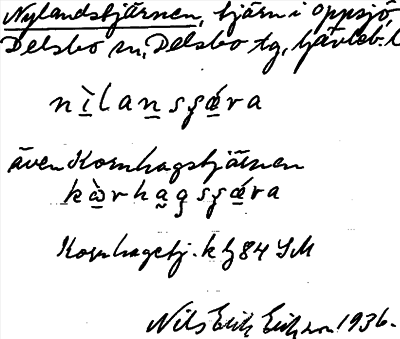 Nylandstjärnen, tjärn i Oppsjö,
Delsbo sn, Delsbo tg, Gävleb. l
nìlansʂǽra
även Kornhagstjärnen
kòrhagsʂǽra
Kornhagstj. k bl 84 SM
Nils Erik Eriksson 1936.